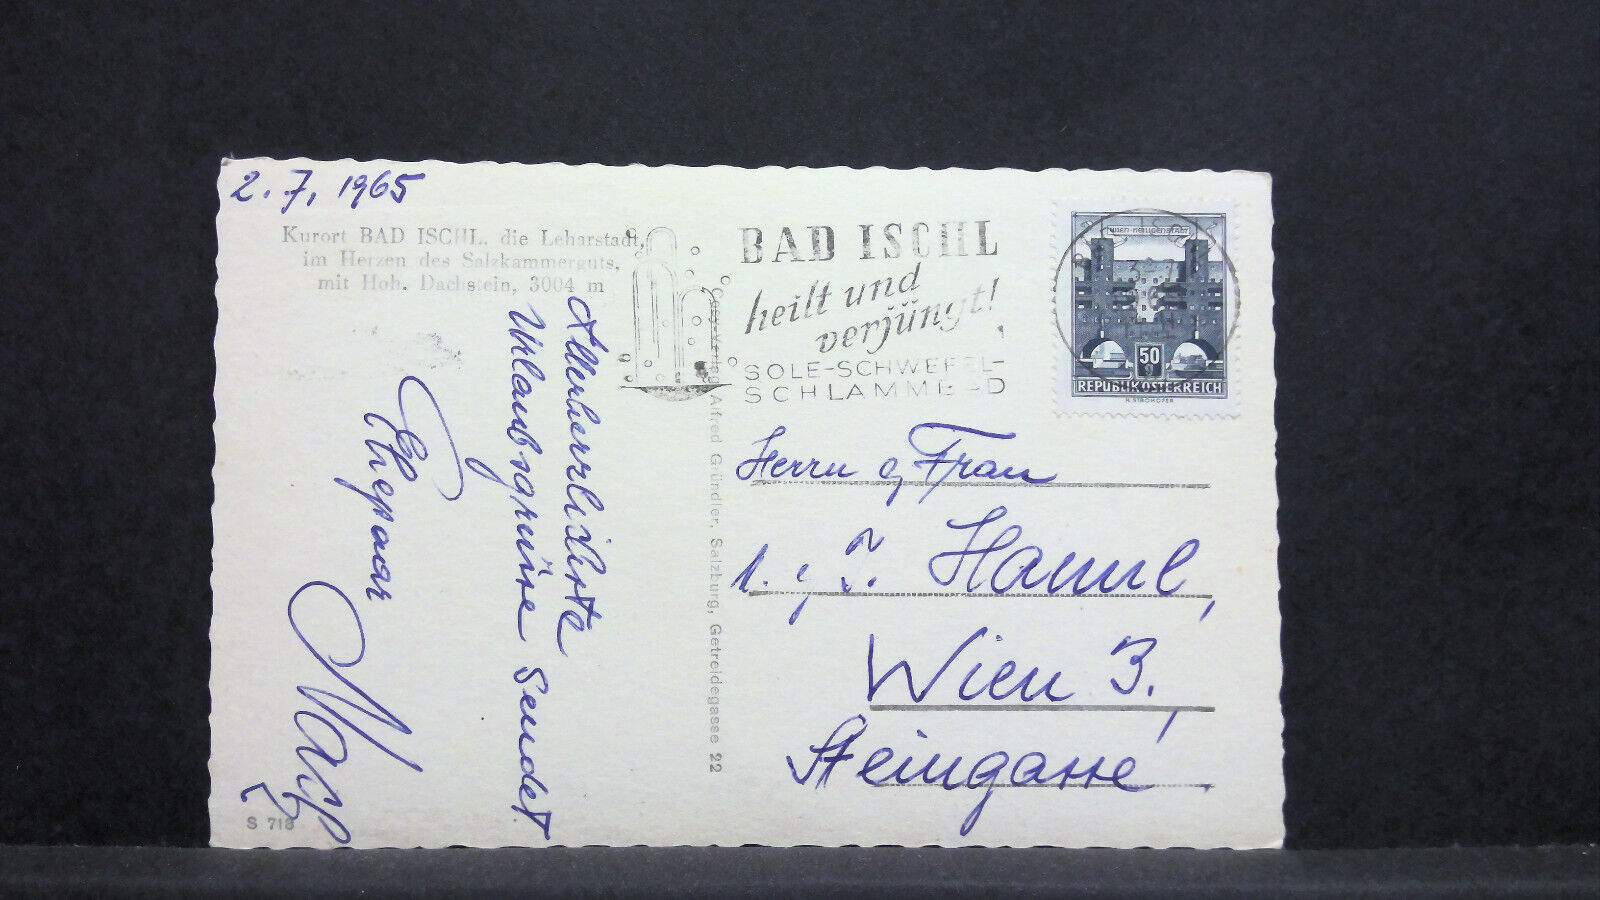 2.7.1965
Kurort BAD ISCHL, die Leharstadt,
im Herzen des Salzkammerguts,
mit Hoh. Dachstein, 3004 m
Allerherzlichste
Urlaubsgrüße sendet
Ehepaar
S 718
Cosy-Verlag Alfred Gründler, Salzburg, Getreidegasse 22
BAD ISCHL
heilt und
verjüngt!
SOLE-SCHWEFEL-
SCHLAMMBAD
WIEN-HEILIGENSTADT
50
REPUBLIK ÖSTERREICH
H. STROHOFER
Herrn u Frau
Hamml,
Wien 3.,
Steingasse